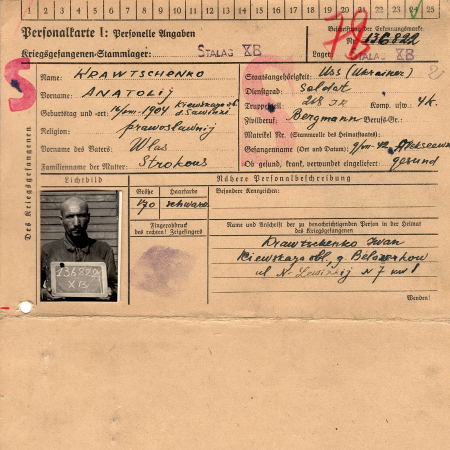 1 2 3 4 5 6 7 8 9 10 11 12 13 14 15 16 17 18 19 20 21 22 23 24 25
Personalkarte I: Personelle Angaben
Kriegsgefangenen-Stammlager: STALAG XB
Beschriftung der Erkennungsmarke
Nr. 136822
Lager: STALAG XB
Des Kriegsgefangenen
Name: KRAWTSCHENKO
Vorname: ANATOLIJ
Geburtstag und -ort: 16/VIII-1904 Kiewskaja obl.
Religion: prawoslawnij
Vorname des Vaters: Wlas
Familienname der Mutter: Strokous
Staatsangehörigkeit: UdS (Ukrainer)
Dienstgrad: Soldat
Truppenteil: 248 JR Komp. usw.: 4K.
Zivilberuf: Bergmann Berufs-Gr.:
Matrikel Nr. (Stammrolle des Heimatstaates):
Gefangennahme (Ort und Datum):
Ob gesund, krank, verwundet eingeliefert: gesund
Lichtbild
136822
XB
Nähere Personalbeschreibung
Größe Haarfarbe Besondere Kennzeichen:
170 schwarz
Fingerabdruck
des rechten! Zeigefingers
Name und Anschrift der zu benachrichtigenden Person in der Heimat
des Kriegsgefangenen
Krawtschenko Iwan
Kiewskaja obl., g.
ul. N 7 kw 1
Wenden!